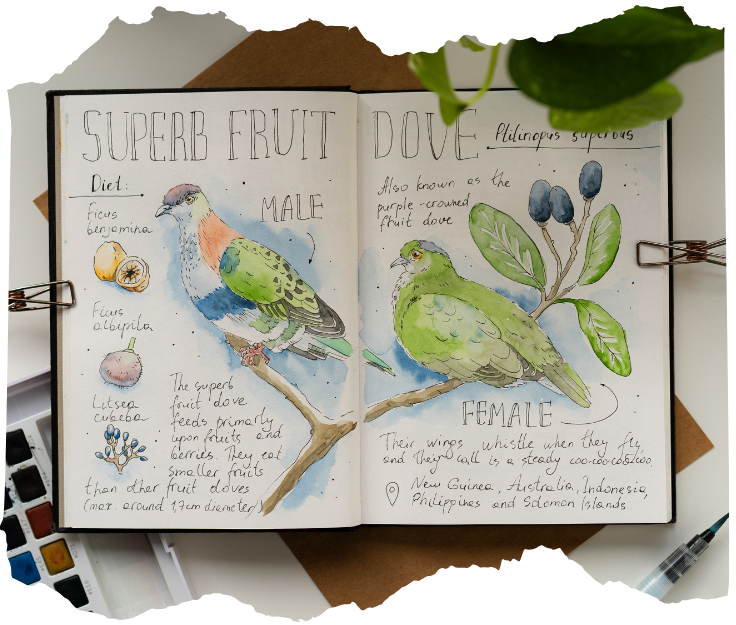 SUPERB FRUIT DOVE
Ptilinopus superbus
Diet:
Ficus
benjamina
Ficus
albipila
Litsea
cubeba
MALE
The superb
fruit dove
feeds primarly
upon fruits and
berries. They eat
smaller fruits
than other fruit doves
(max. around 1,7cm diameter)
Also known as the
purple-crowned
fruit dove
FEMALE
Their wings whistle when they fly,
and their call is a steady coo-coo-coo-coo.
New Guinea, Australia, Indonesia,
Philippines and Solomon Islands